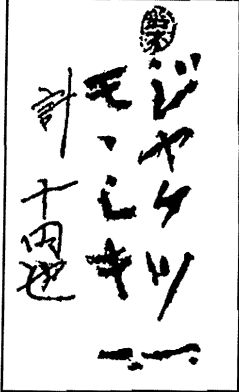 ジヤケツ 一
モヽヒキ 一
計 十円也